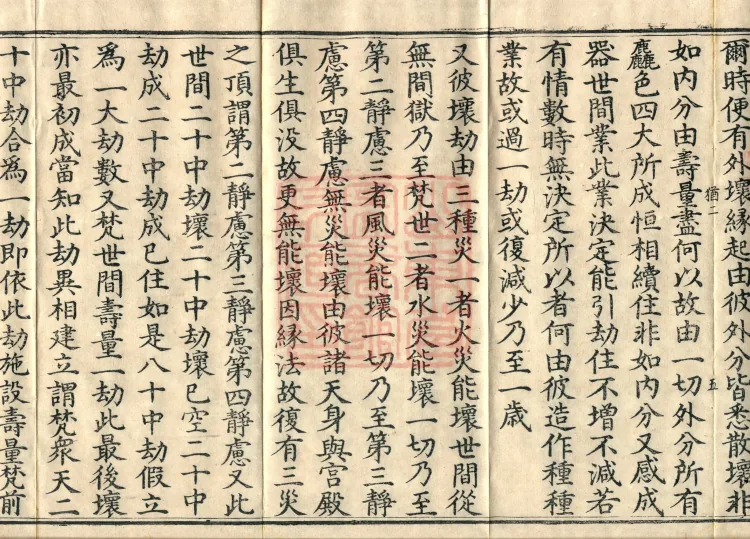 爾時便有外壞縁起由彼外分皆悉散壞非
猶二
五
如内分由壽量盡何以故由一切外分所有
麤色四大所成恒相續住非如内分又感成
器世間業此業決定能引劫住不增不減若
有情數時無決定所以者何由彼造作種種
業故或過一劫或復減少乃至一歳
又彼壞劫由三種災一者火災能壞世間從
無間獄乃至梵世二者水災能壞一切乃至
第二靜慮三者風災能壞一切乃至第三靜
慮第四靜慮無災能壞由彼諸天身與宮殿
俱生俱没故更無能壞因縁法故復有三災
之頂謂第二靜慮第三靜慮第四靜慮又此
世間二十中劫壞二十中劫壞已空二十中
劫成二十中劫成已住如是八十中劫假立
為一大劫數又梵世間壽量一劫此最後壞
亦最初成當知此劫異相建立謂梵衆天二
十中劫合為一劫即依此劫施設壽量梵前